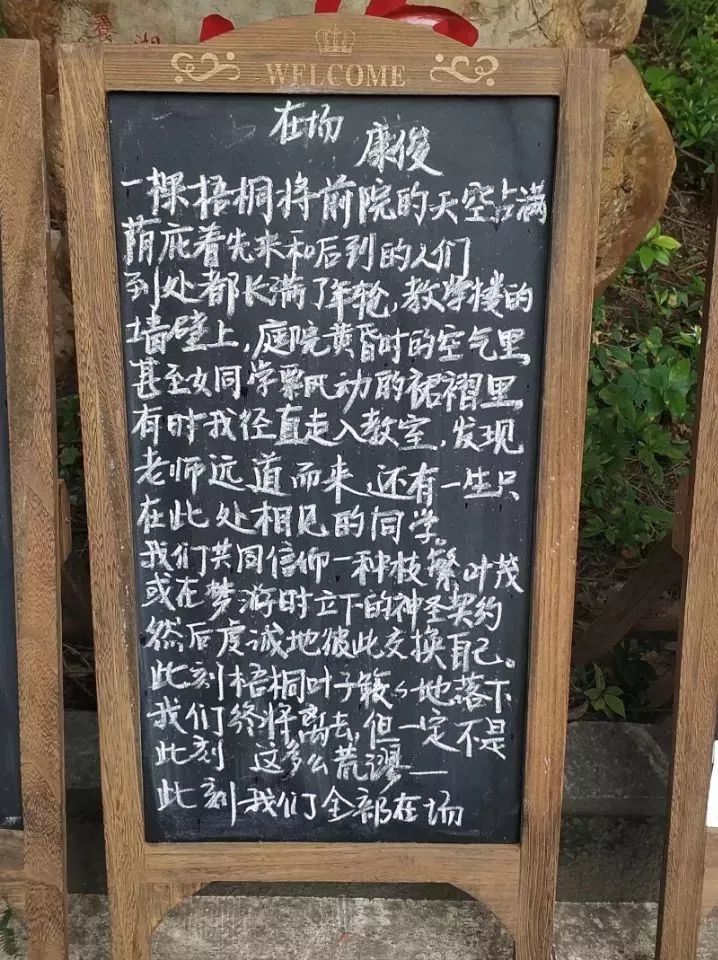 WELCOME
在场
康俊
一棵梧桐将前院的天空占满
荫庇着先来和后到的人们
到处都长满了年轮,教学楼的
墙壁上,庭院黄昏时的空气里
甚至女同学飘动的裙褶里
有时我径直走入教室,发现
老师远道而来,还有一生只
在此处相见的同学。
我们共同信仰一种枝繁叶茂
或在梦游时立下的神圣契约
然后虔诚地彼此交换自己。
此刻梧桐叶子簌々地落下
我们终将离去,但一定不是
此刻 这多么荒谬——
此刻我们全部在场